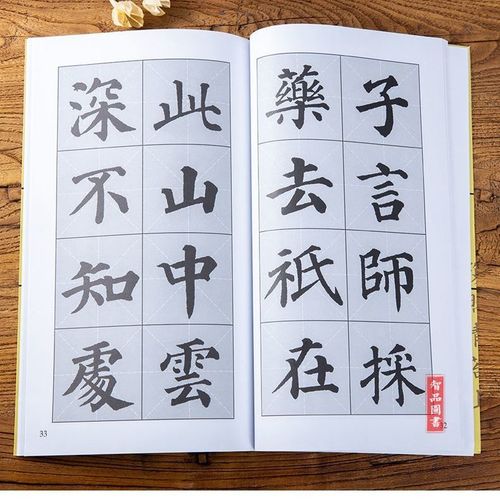 子言師採
藥去祇在
此山中雲
深不知處
33
2
智品圖書